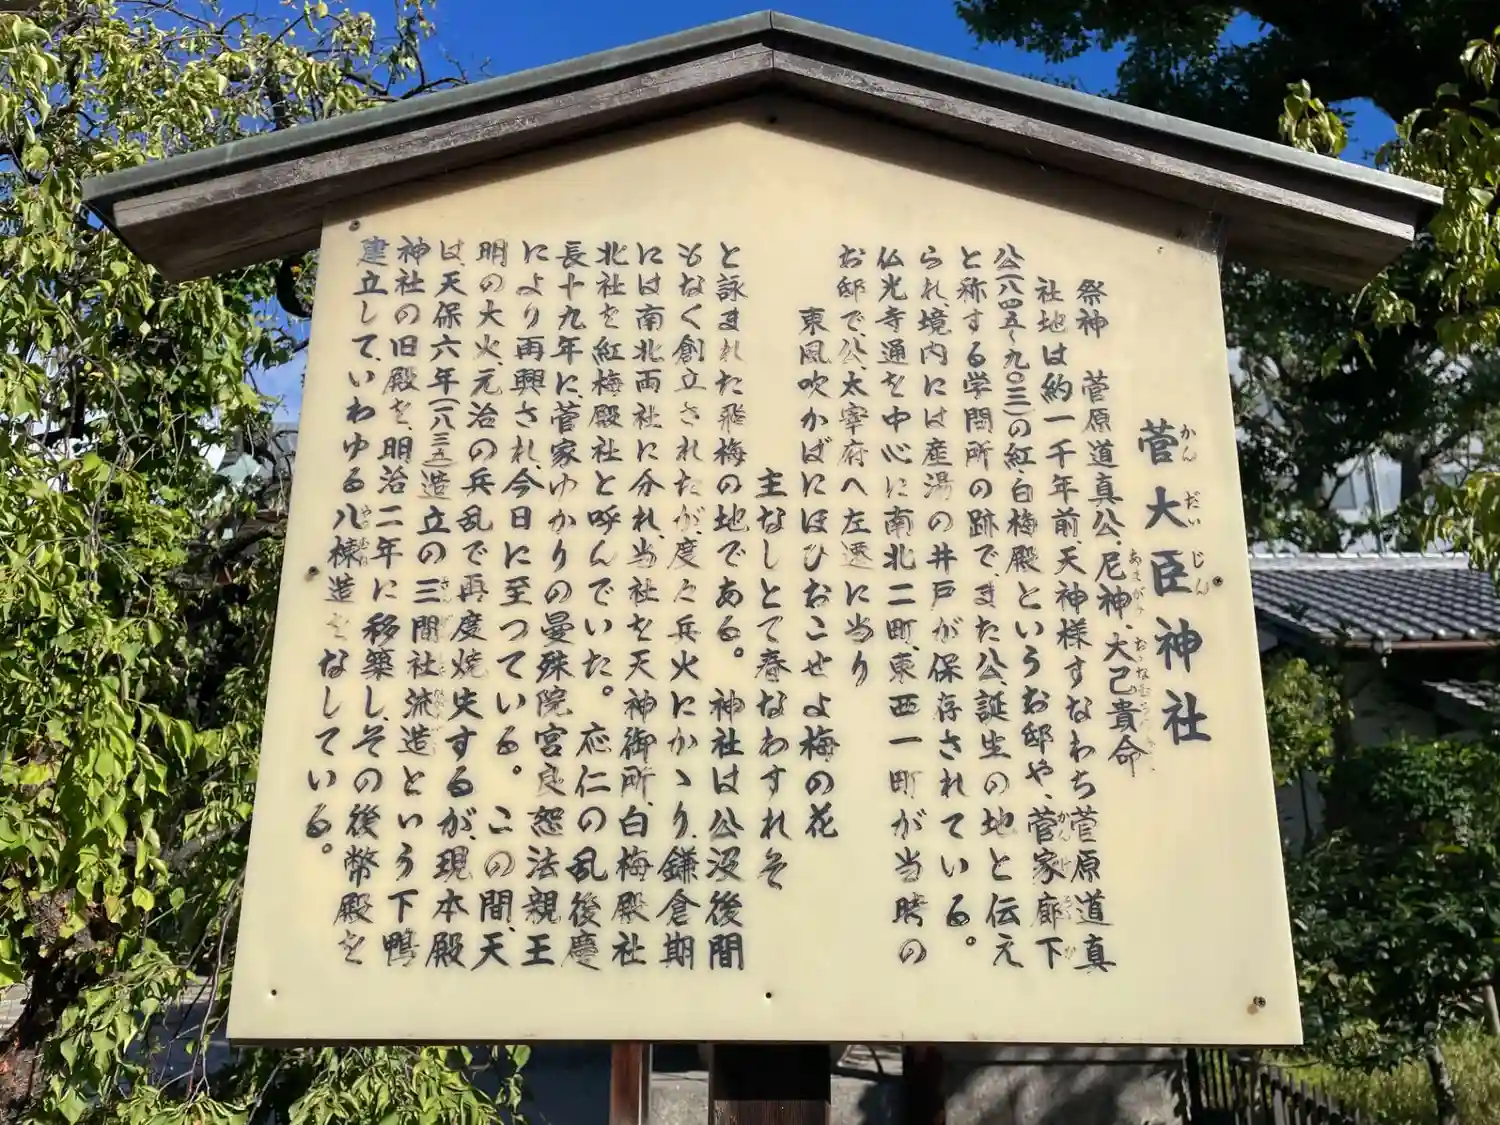 菅大臣神社
かんだいじん
祭神　菅原道真公、尼神、大己貴命
社地は約一千年前、天神様すなわち菅原道真
公(八四五〜九〇三)の紅・白梅殿というお邸や、菅家廊下
と称する学問所の跡で、また公誕生の地と伝え
られ、境内には産湯の井戸が保存されている。
仏光寺通を中心に南北二町、東西一町が当時の
お邸で、公、太宰府へ左遷に当り
東風吹かばにほひおこせよ梅の花
主なしとて春なわすれそ
と詠まれた飛梅の地である。神社は公没後間
もなく創立されたが、度々兵火にかゝり、鎌倉期
には南北両社に分れ、当社を天神御所、白梅殿社
北社を紅梅殿社と呼んでいた。応仁の乱後慶
長十九年に、菅家ゆかりの曼殊院宮良恕法親王
により再興され、今日に至っている。この間、天
明の大火、元治の兵乱で再度焼失するが、現本殿
は、天保六年(一八三五)造立の三間社流造という下鴨
神社の旧殿を、明治二年に移築し、その後幣殿を
建立して、いわゆる八棟造をなしている。